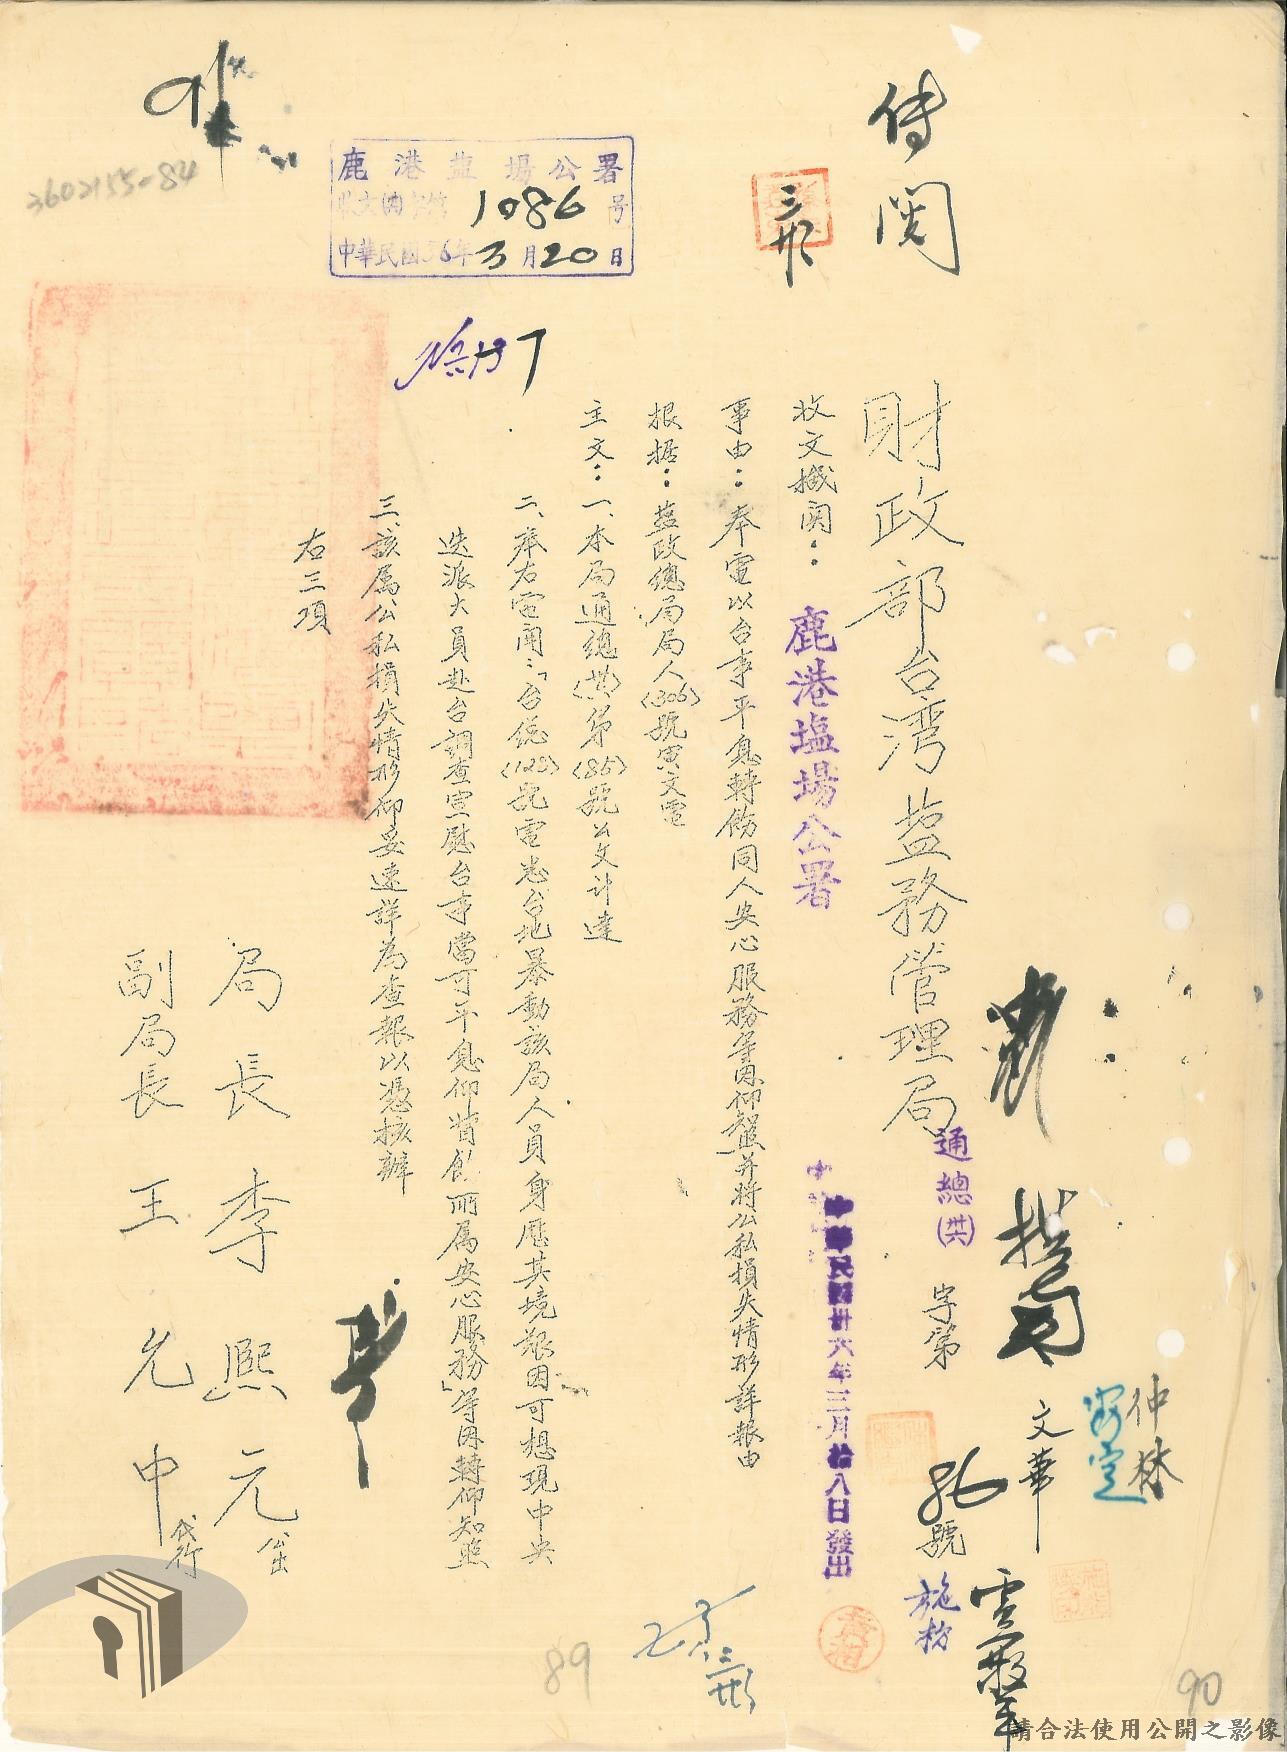 傳閱
財政部台湾盐務管理局
通總(卅六)字第86號
收文機関：鹿港塩場公署
中華民國卅六年三月拾八日發出
事由：奉電以台事平息轉飭同人安心服務等因仰知照并將公私損失情形詳報由
根据：盐政總局局人(306)號寅文電
主文：一、本局通總(卅六)第(85)號公文计達
二、奉右電開：「台總(123)號電悉台地暴動該局人員身歷其境艰困可想現中央
迭派大員赴台調查宣慰台事當可平息仰賞飭所属安心服務」等因轉仰知照
三、該属公私損失情形仰妥速詳為查報以憑核辦
右三項
局長李熙元公出
副局長王允中代行
鹿港盐場公署
收文 1086号
中華民國36年3月20日
3602155-84
三
文華
仲林
89
90
請合法使用公開之影像